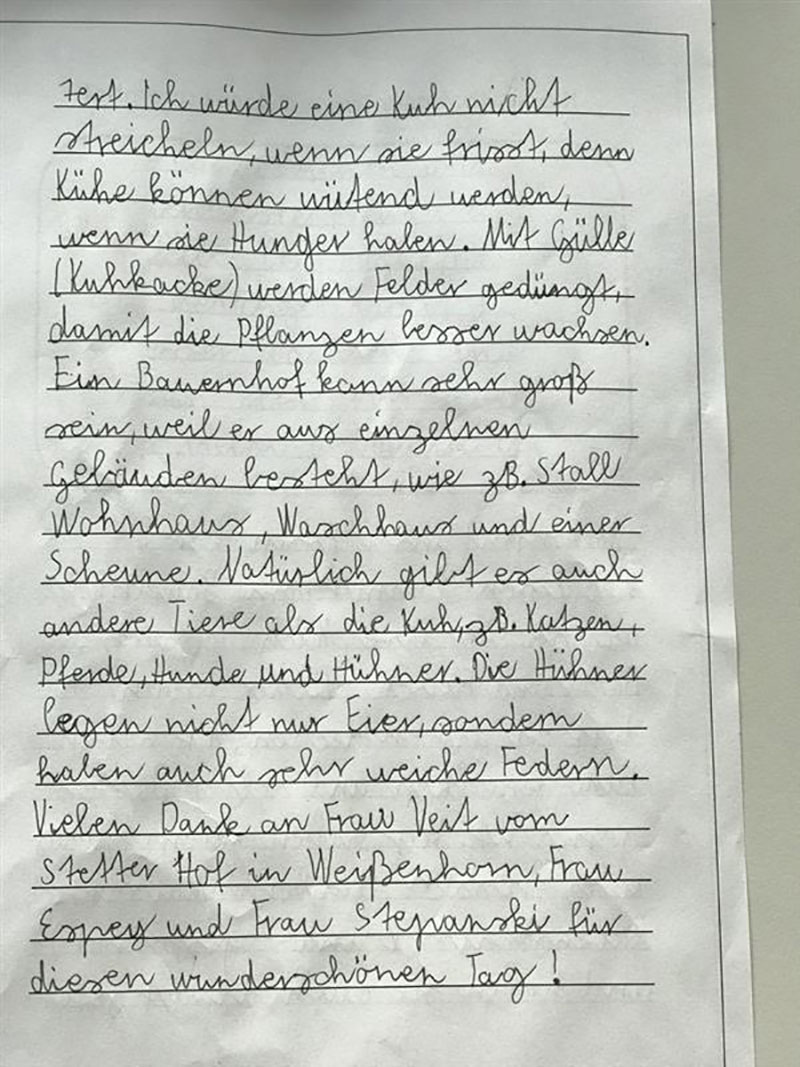 tert. Ich würde eine Kuh nicht
streicheln, wenn sie frisst, denn
Kühe können wütend werden,
wenn sie Hunger haben. Mit Gülle
(Kuhkacke) werden Felder gedüngt,
damit die Pflanzen besser wachsen.
Ein Bauernhof kann sehr groß
sein, weil er aus einzelnen
Gebäuden besteht, wie zB. Stall
Wohnhaus, Waschhaus und einer
Scheune. Natürlich gibt es auch
andere Tiere als die Kuh, zB. Katzen,
Pferde, Hunde und Hühner. Die Hühner
legen nicht nur Eier, sondern
haben auch sehr weiche Federn.
Vielen Dank an Frau Veit vom
Stetter Hof in Weißenhorn, Frau
Espey und Frau Stepanski für
diesen wunderschönen Tag!